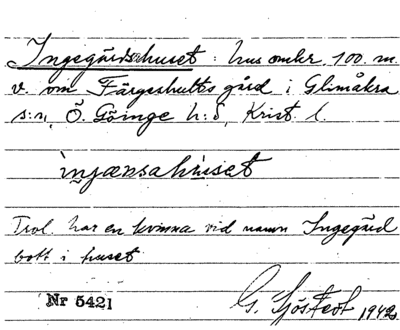 Ingegärdsahuset : hus omkr. 100 m.
v. om Färgeshults gård i Glimåkra
s:n, Ö. Göinge h:d, Krist. l.
ìnjænsahúset
Trol. har en kvinna vid namn Ingegärd
bott i huset
Nr 5421
G. Sjöstedt 1942